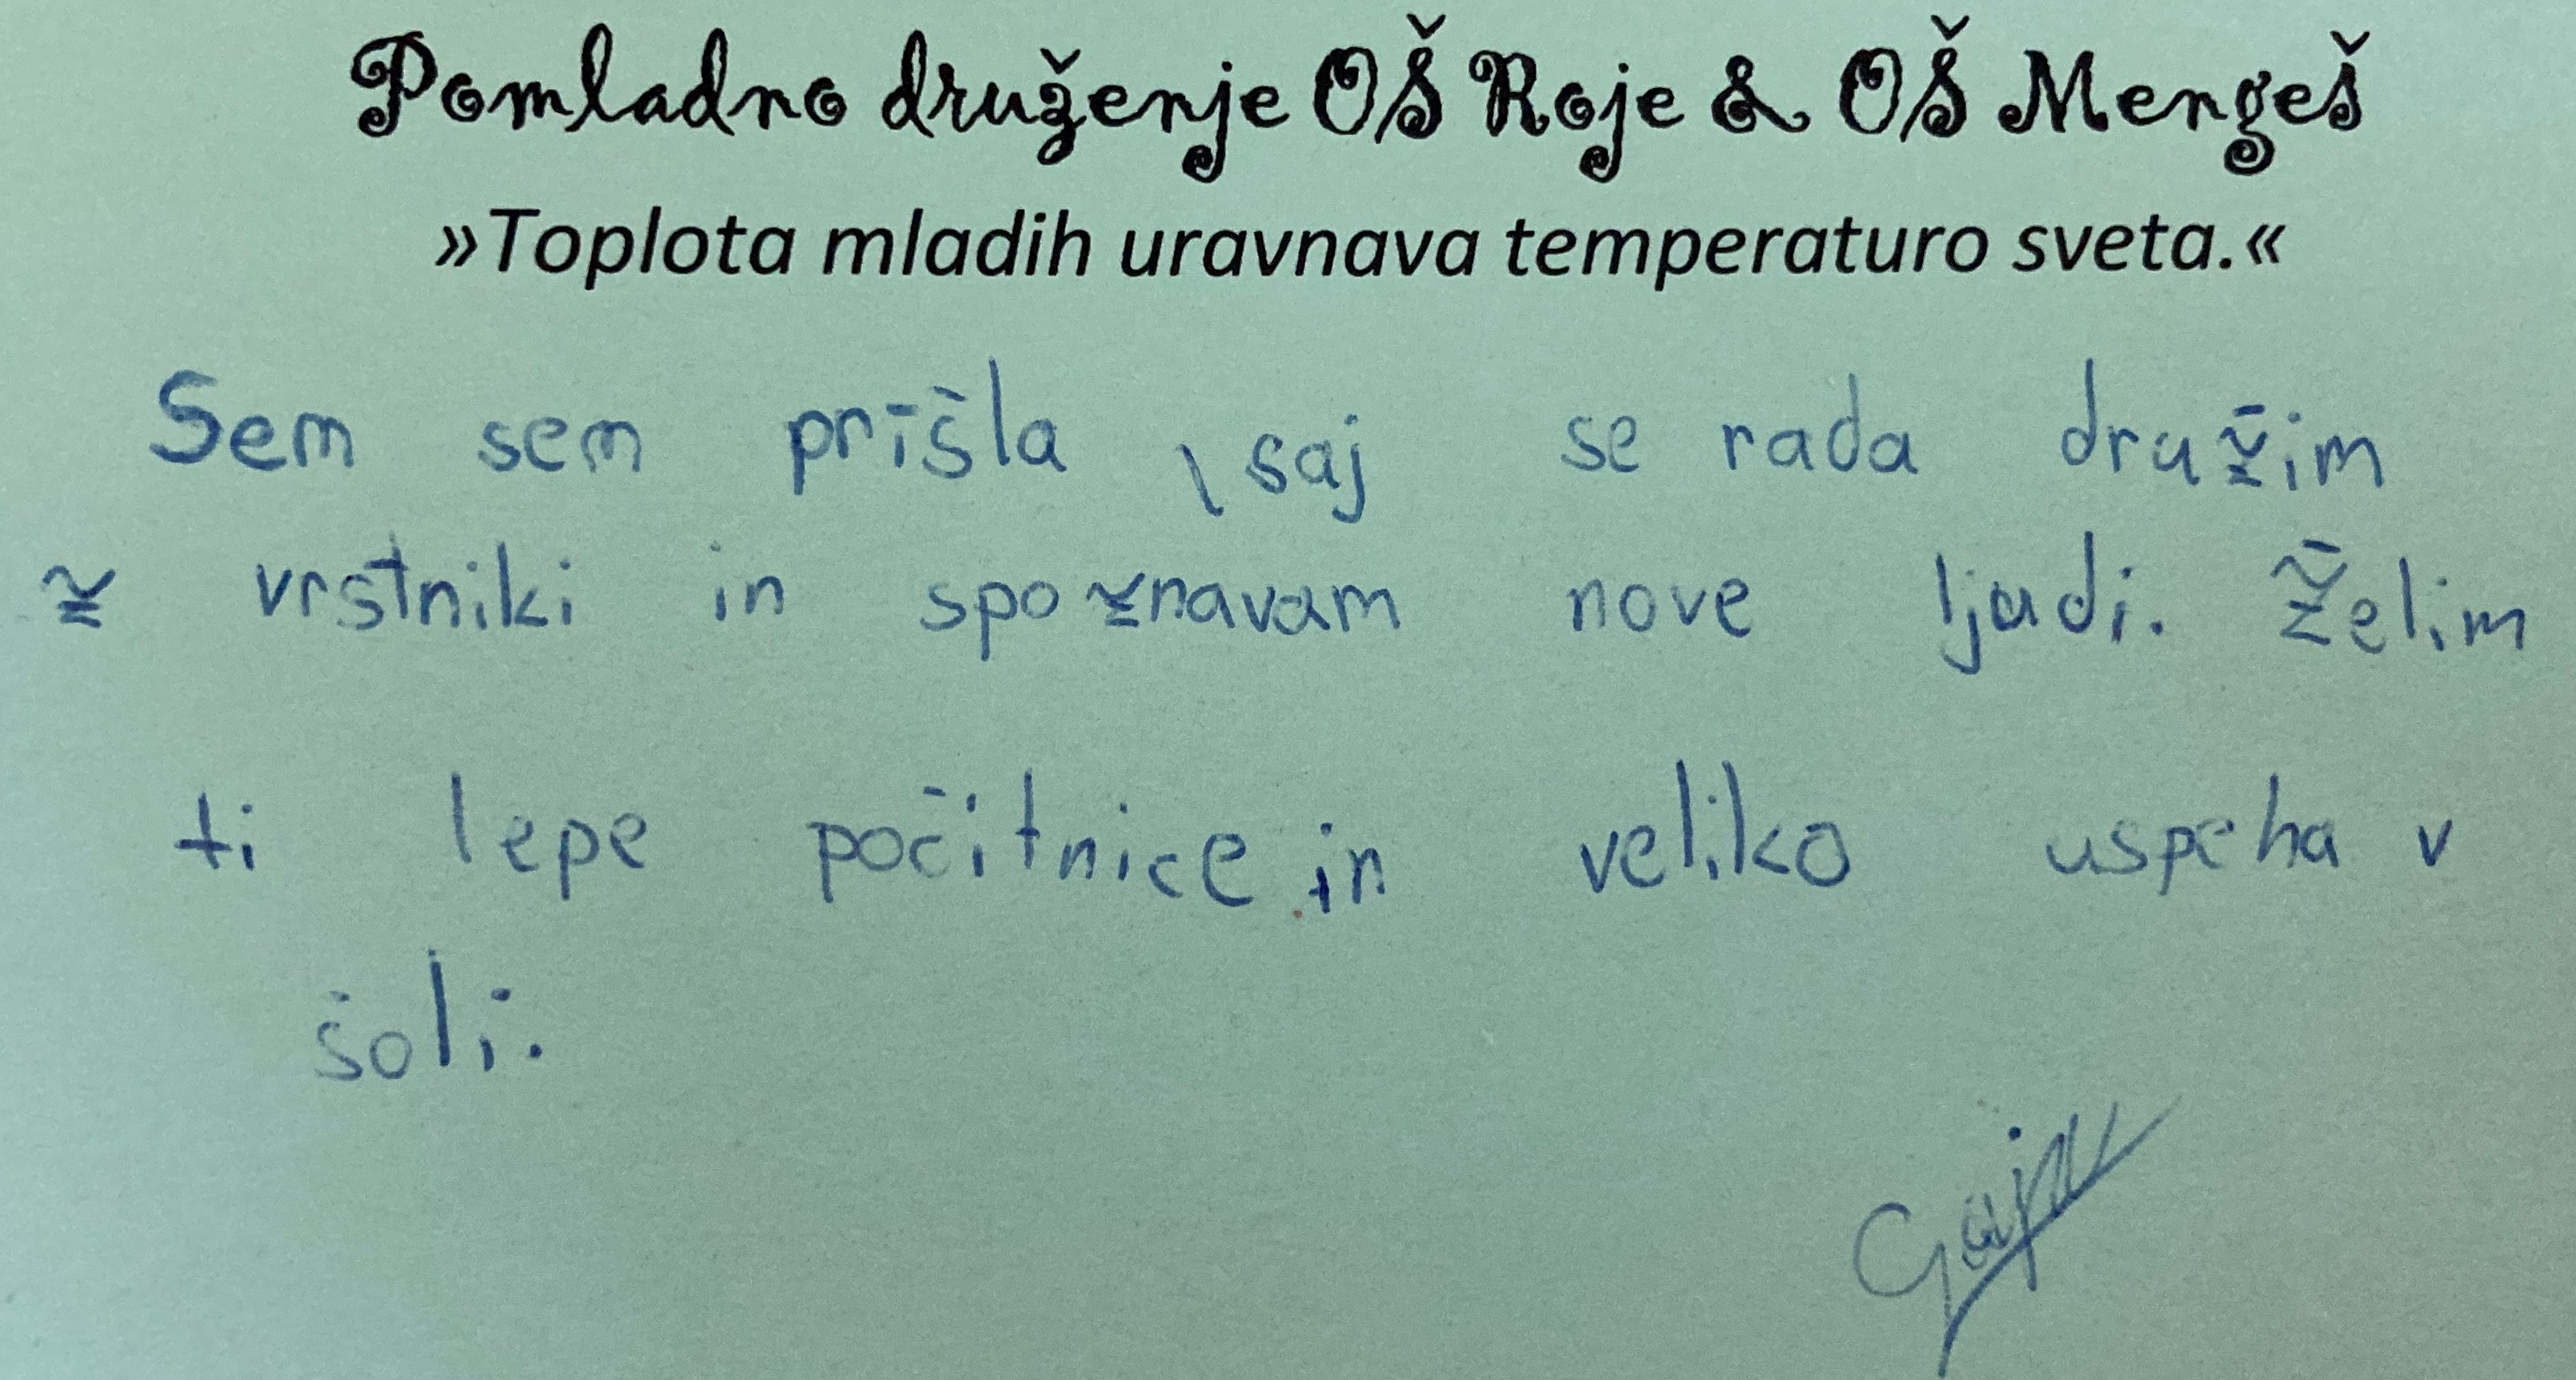 Pomladno druženje OŠ Roje & OŠ Mengeš
»Toplota mladih uravnava temperaturo sveta.«
Sem sem prišla, saj se rada družim
z vrstniki in spoznavam nove ljudi. Želim
ti lepe počitnice in veliko uspeha v
šoli.
Gaja